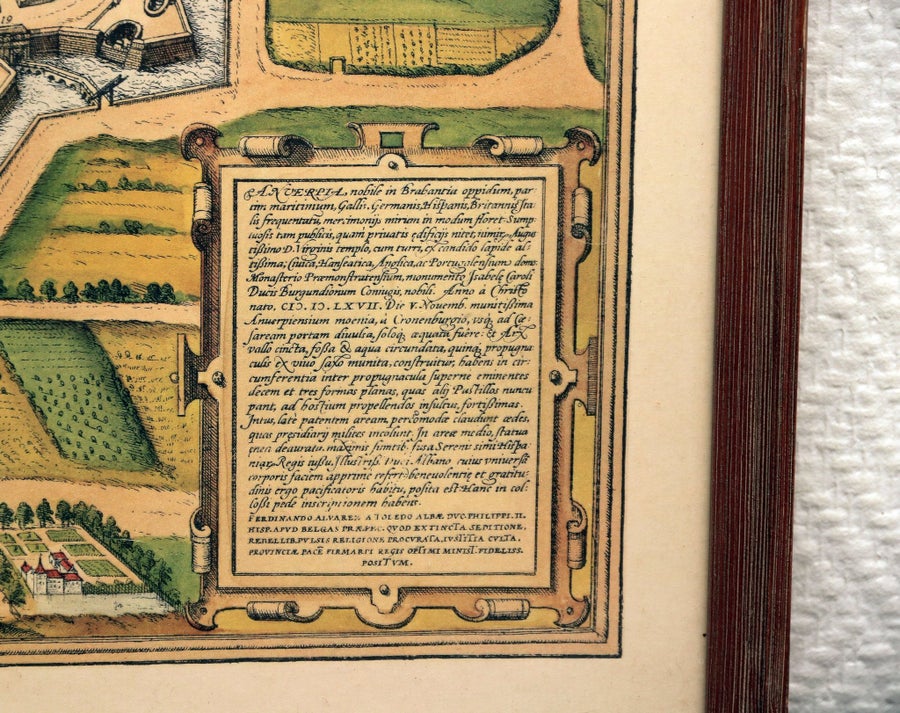 19
ANVERPIA, nobile in Brabantia oppidum, par
tim maritimum, Gallis, Germanis, Hispanis, Britannis, Ita
lis frequentatū, mercimonijs mirum in modum floret. Sump
tuosis tam publicis, quam priuatis ędificijs nitet, nimir. Augus
tissimo D. Virginis templo, cum turri, ex candido lapide al
tissima; Ciuica, Hanseatica, Anglica, ac Portugalensium domo
Monasterio Præmonstratensium, monumento Isabelę Caroli
Ducis Burgundionum Coniugis, nobili. Anno à Christo
nato. CIƆ. IƆ. LXVII. Die V. Nouemb. munitissima
Anuerpiensium moenia, à Cronenburgio, usq, ad Cæ
saream portam diuulsa, soloq, æquata fuêre: & Arx
vallo cincta, fossa & aqua circundata, quinq, propugna
culis ex viuo saxo munita, construitur, habens in cir
cumferentia inter propugnacula superne eminentes
decem et tres formas planas, quas alij Pastillos nuncu
pant, ad hostium propellendos insultus, fortissimas.
Intus, latè patentem aream, percomodæ claudunt ædes,
quas presidiarij milites incolunt. In areæ medio, statua
ęnea deaurata, maximis sumtib. fusa Serenissimi Hispa
niar. Regis iussu, Illustriss. Duci Albano cuius vniuersi
corporis faciem apprime refert: beneuolentię et gratitu-
dinis ergo pacificatoris habitu, posita est. Hanc in col-
lossi pede inscriptionem habens.
FERDINANDO ALVAREZ A TOLEDO ALBÆ DVC. PHILIPPI. II.
HISP. APVD BELGAS PRÆFEC. QVOD EXTINCTA SEDITIONE,
REBELLIB. PVLSIS RELIGIONE PROCVRATA, IVSTITIA CVLTA.
PROVINCIÆ PACĒ FIRMARIT REGIS OPTIMI MINIST. FIDELISS.
POSITVM.